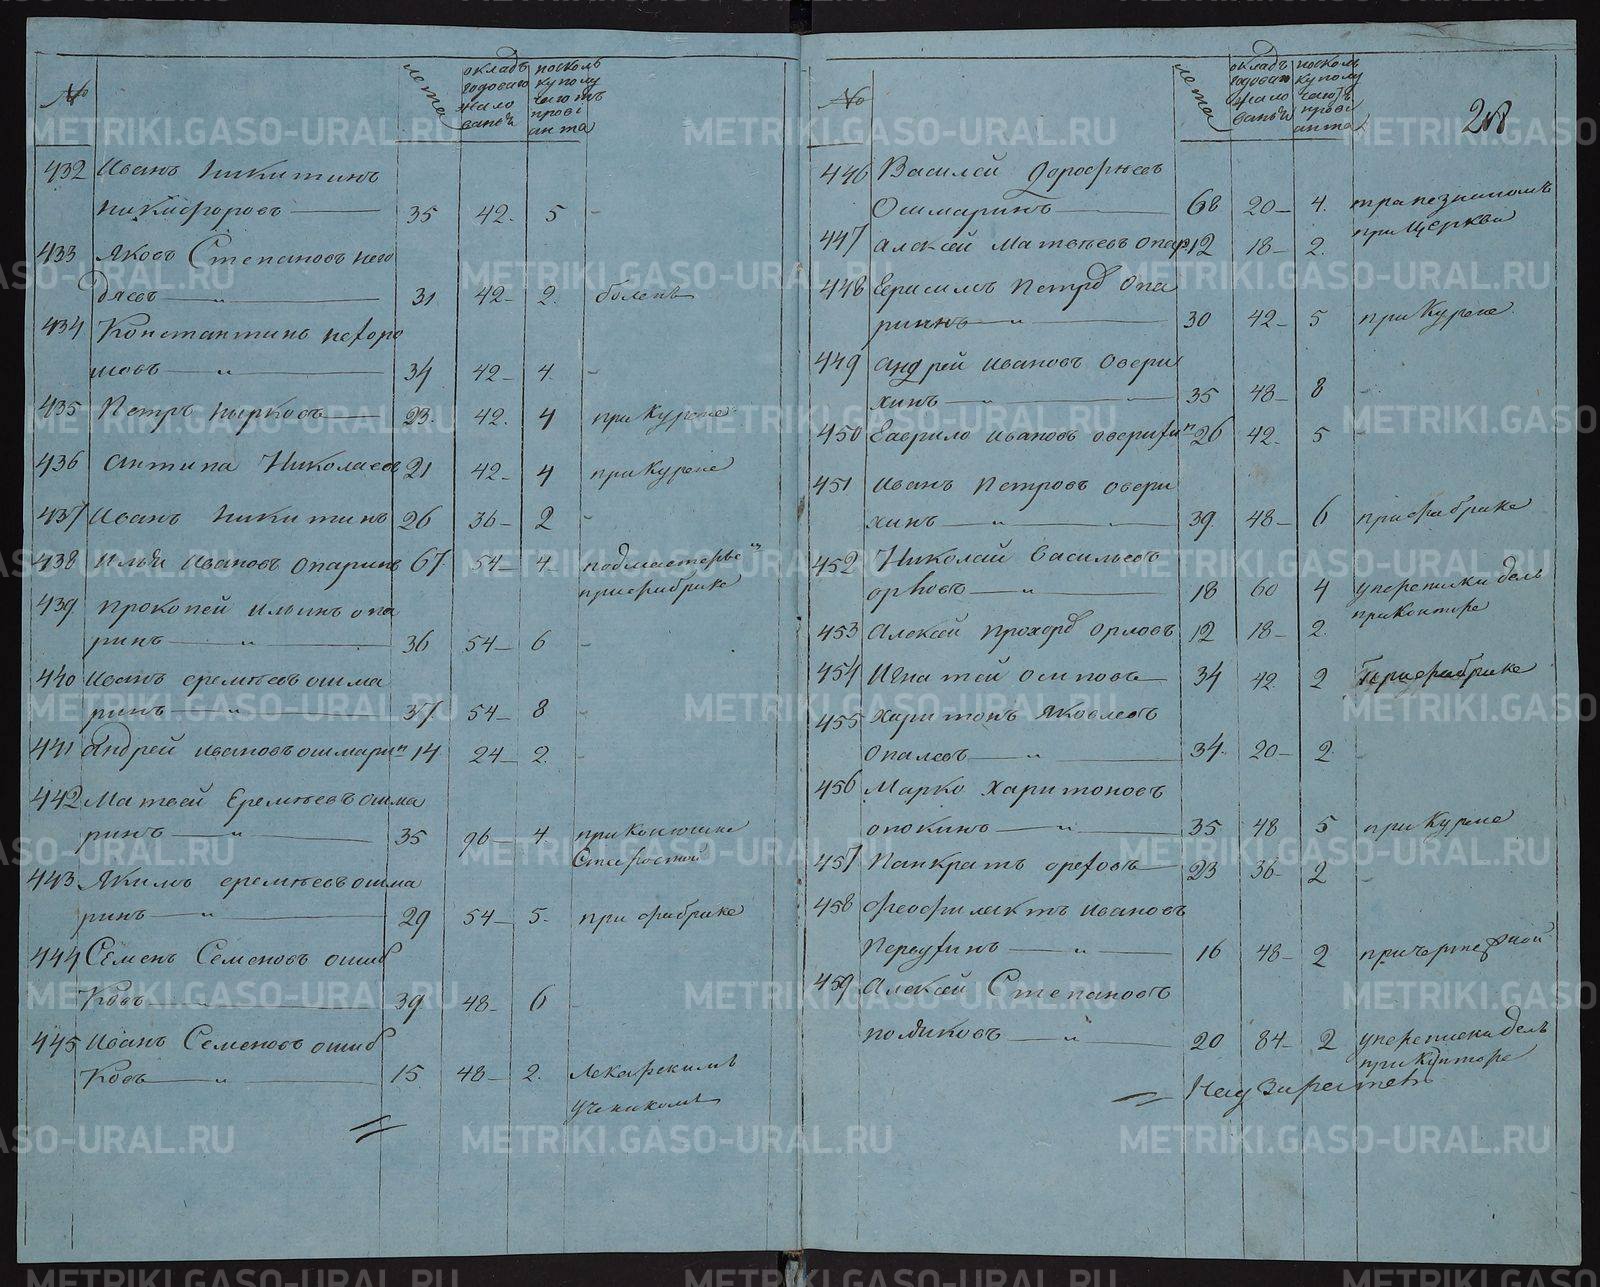 № лета окладъ годоваго жалованья посколь ку получаютъ провіанта
432 Иванъ Никитинъ
Никифоровъ 35 42 5 -
433 Яковъ Степановъ него
дяевъ 31 42 2 боленъ
434 Константинъ нехоро
шовъ 34 42 4 -
435 Петръ Нырковъ 23 42 4 при Курене
436 Антипа Николаевъ 21 42 4 при Курене
437 Иванъ Никитинъ 26 36 2 -
438 Илья Ивановъ опаринъ 67 54 4 подмастерье
при фабрике
439 прокопей Ильинъ опа
ринъ 36 54 6 -
440 Иванъ еремѣевъ ошма
ринъ 37 54 8 -
441 Андрей Ивановъ ошмаринъ 14 24 2 -
442 Матвей Еремѣевъ ошма
ринъ 35 96 4 при Конюшне
Старостой
443 Якимъ еремѣевъ ошма
ринъ 29 54 5 при фабрике
444 Семенъ Семеновъ ошиб
ковъ 39 48 6 -
445 Иванъ Семеновъ ошиб
ковъ 15 48 2 лекарскимъ
ученикомъ
№ лета окладъ годоваго жалованья посколь ку получаютъ провіанта
446 Василей Дорофѣевъ
Ошмаринъ 68 20 4 трапезникомъ
при Церкви
447 Алексей Матвѣевъ опар 12 18 2
448 Герасимъ Петровъ Опа
ринъ 30 42 5 при Курене
449 Андрей Ивановъ Овери
хинъ 35 48 8 -
450 Гаврило Ивановъ оверихинъ 26 42 5 -
451 Иванъ Петровъ овери
хинъ 39 48 6 при фабрике
452 Николай Васильевъ
орловъ 18 60 4 у переписки делъ
при Конторе
453 Алексей Прохоровъ Орловъ 12 18 2
454 Игнатей Осиповъ 34 42 2 При фабрике
455 Харитонъ Яковлевъ
опалевъ 34 20 2 -
456 Марко Харитоновъ
опокинъ 35 48 5 при Курене
457 Панкратъ ореховъ 23 36 2 -
458 Феофилактъ Ивановъ
Пересухинъ 16 48 2 при чертежной
459 Алексей Степановъ
поляковъ 20 84 2 у переписки делъ
при Конторе
Надзиратель
METRIKI.GASO-URAL.RU